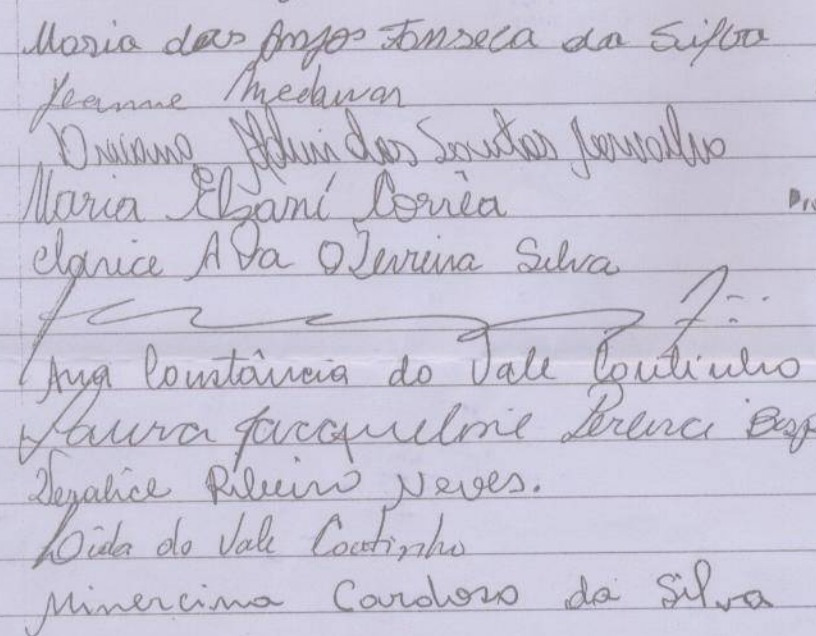 Maria das Anjos Fonseca da Silva
Jeanne Medawar
dos Santos
Maria Ebani Corrêa
Clarice A Da Oliveira Silva
Ana Constância do Vale Coutinho
Laura Jacqueline
Ribeiro Neves.
do Vale Coutinho
Minercina Cardoso da Silva